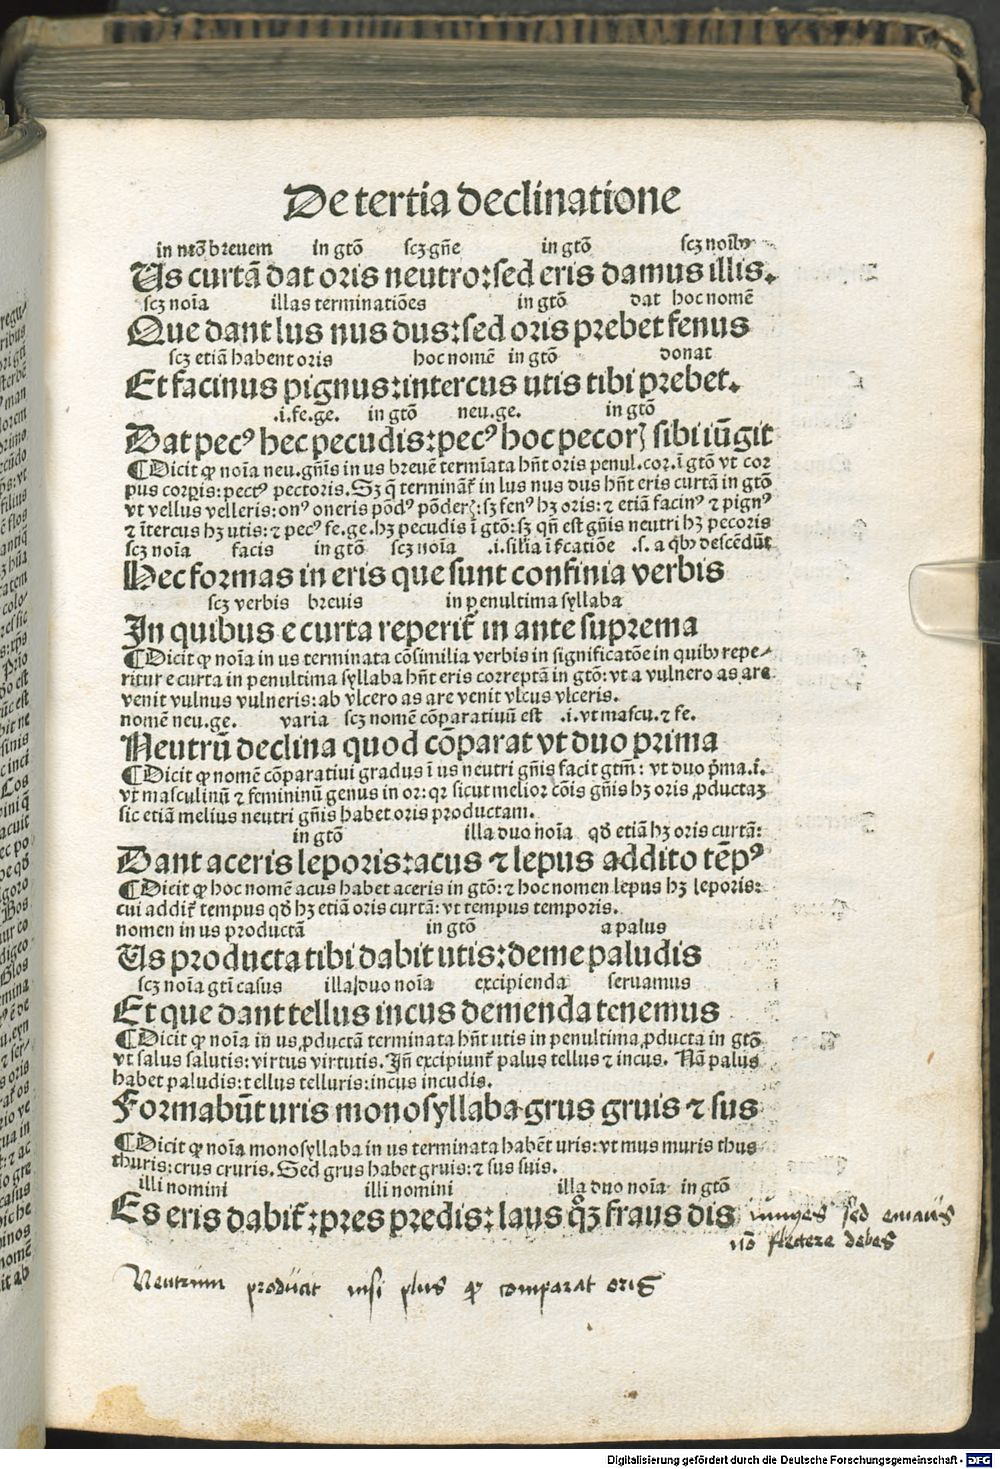 De tertia declinatione
in ntō breuem in gtō scꝫ gñe in gtō scꝫ noībꝰ
Us curtā dat oris neutro: sed eris damus illis.
scꝫ noīa illas terminatiōes in gtō dat hoc nomē
Que dant lus nus dus: sed oris prebet fenus
scꝫ etiā habent oris hoc nomē in gtō donat
Et facinus pignus: intercus utis tibi prebet.
.i. fe. ge. in gtō neu. ge. in gtō
Dat pecꝰ hec pecudis: pecꝰ hoc pecorꝭ sibi iūgit
¶Dicit ꝙ noīa neu. gñis in us breuē termīata hñt oris penul. cor. ī gtō vt cor
pus corꝑis: pectꝰ pectoris. Sꝫ q̄ terminãt̃ in lus nus dus hñt eris curtā in gtō
vt vellus velleris: onꝰ oneris pōdꝰ pōderꝭ: sꝫ fenꝰ hꝫ oris: ⁊ etiā facinꝰ ⁊ pignꝰ
⁊ ītercus hꝫ utis: ⁊ pecꝰ fe. ge. hꝫ pecudis ī gtō: sꝫ qñ est gñis neutri hꝫ pecoris
scꝫ noīa facis in gtō scꝫ noīa .i. silīa ī sīcatiōe .s. a qbꝰ descēdūt
Hec formas in eris que sunt confinia verbis
scꝫ verbis breuis in penultima syllaba
In quibus e curta reperit̃ in ante suprema
¶Dicit ꝙ noīa in us terminata cōsimilia verbis in significatōe in quibꝰ repe
ritur e curta in penultima syllaba hñt eris correptā in gtō: vt a vulnero as are
venit vulnus vulneris: ab vlcero as are venit vlcus vlceris.
nomē neu. ge. varia scꝫ nomē cōparatiuū est .i. vt mascu. ⁊ fe.
Neutrū declina quod cōparat vt duo prima
¶Dicit ꝙ nomē cōparatiui gradus ī us neutri gñis facit gtm̄: vt duo p̄ma .i.
vt masculinū ⁊ femininū genus in or: qr sicut melior cōis gñis hꝫ oris ꝓductaꝫ
sic etiā melius neutri gñis habet oris productam.
in gtō illa duo noīa qđ etiā hꝫ oris curtā:
Dant aceris leporis: acus ⁊ lepus addito tēpꝰ
¶Dicit ꝙ hoc nomē acus habet aceris in gtō: ⁊ hoc nomen lepus hꝫ leporis:
cui addit̃ tempus qđ hꝫ etiā oris curtā: vt tempus temporis.
nomen in us productā in gtō a palus
Us producta tibi dabit utis: deme paludis
scꝫ noīa gtī casus illa duo noīa excipienda seruamus
Et que dant tellus incus demenda tenemus
¶Dicit ꝙ noīa in us ꝓductā terminata hñt utis in penultima ꝓducta in gtō
vt salus salutis: virtus virtutis. Iñ excipiunt̃ palus tellus ⁊ incus. Nā palus
habet paludis: tellus telluris: incus incudis.
Formabūt uris monosyllaba grus gruis ⁊ sus
¶Dicit ꝙ noīa monosyllaba in us terminata habēt uris: vt mus muris thus
thuris: crus cruris. Sed grus habet gruis: ⁊ sus suis.
illi nomini illi nomini illa duo noīa in gtō
Es eris dabit̃: pres predis: laus qꝫ fraus dis iunges sed
nō flectere debes
Neutrum producit nisi plus ꝙ comparat oris
Digitalisierung gefördert durch die Deutsche Forschungsgemeinschaft - DFG